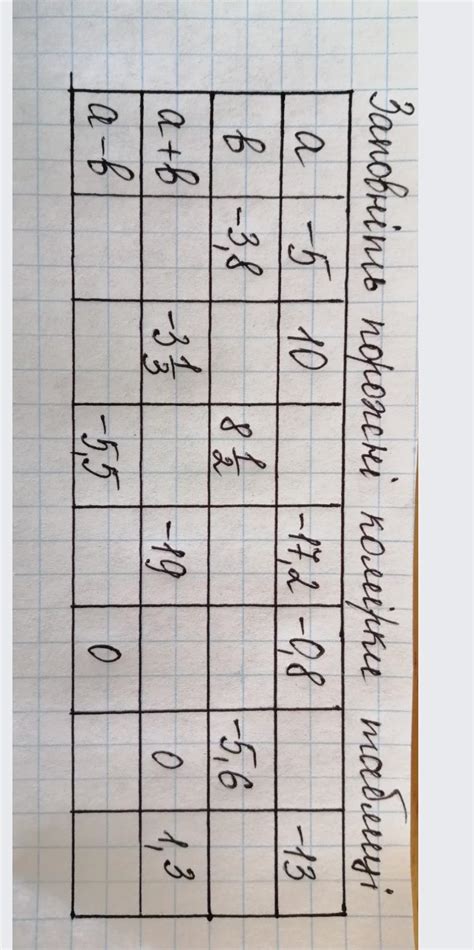 Заповніть порожні комірки таблиці
a -5 10 -17,2 -0,8 -13
b -3,8 8 1/2 -5,6
a+b -3 1/3 -19 0 1,3
a-b -5,5 0